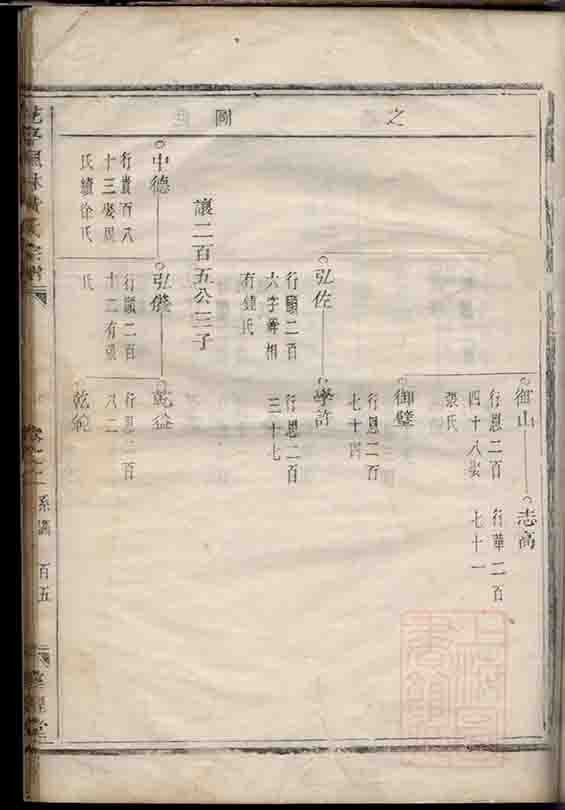 之
圖
御山
行恩二百
四十八娶
張氏
志高
行華二百
七十一
御璧
行恩二百
七十四
弘佐
行顯二百
六字舜相
有鍾氏
學許
行恩二百
三十七
讓二百五公三子
中德
行貴百八
十三娶周
氏續徐氏
弘
行顯二百
十二有張
氏
乾益
行恩二百
八二
乾範
宗譜
系圖
百五
堂
上海圖書館藏